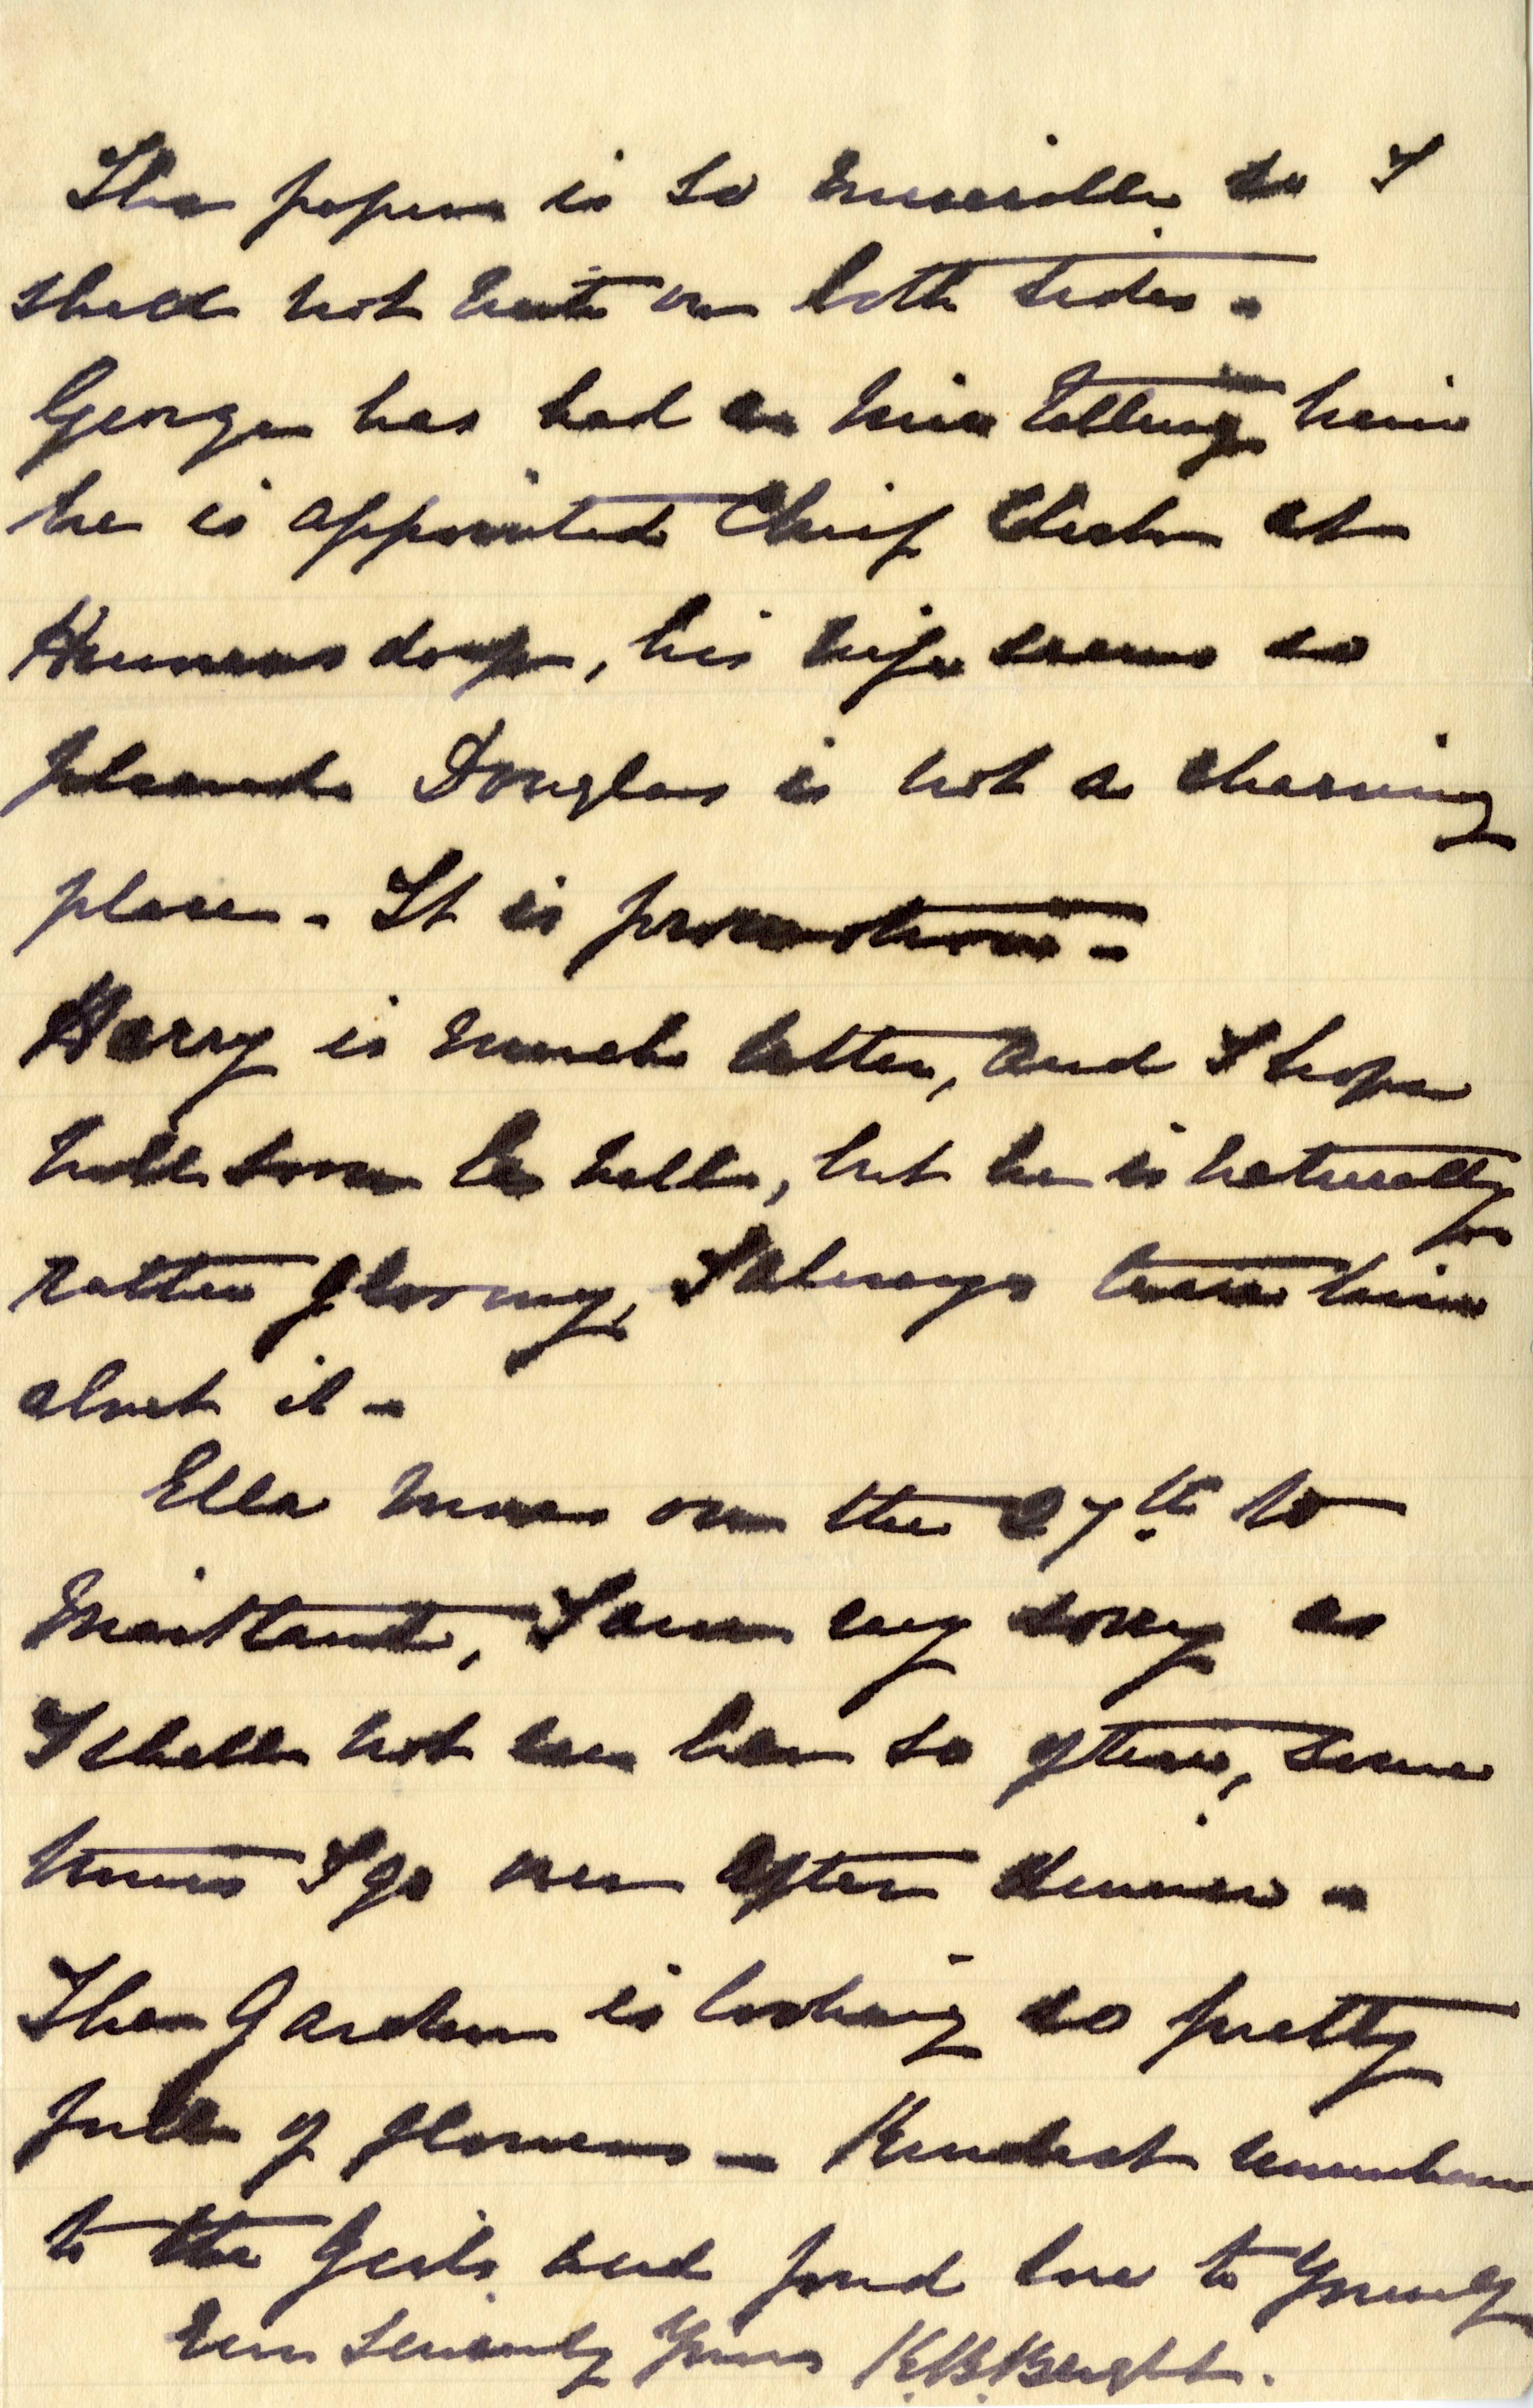 The paper is so miserable so I
shall not write on both sides -
George has had a wire telling him
he is appointed Chief Clerk at
Humansdorp, his wife seems so
pleased Douglas is not a charming
place - It is promotion -
Harry is much better, and I hope
will soon be well, but he is naturally
rather gloomy, I always tease him
about it -
Ella moves on the 27th to
Maitland, I am very sorry as
I shall not see her so often, some
times I go over after dinner -
The Garden is looking so pretty
full of flowers - Kindest remembrance
to the Girls and fond love to yourself
Ever sincerely yours K.B.